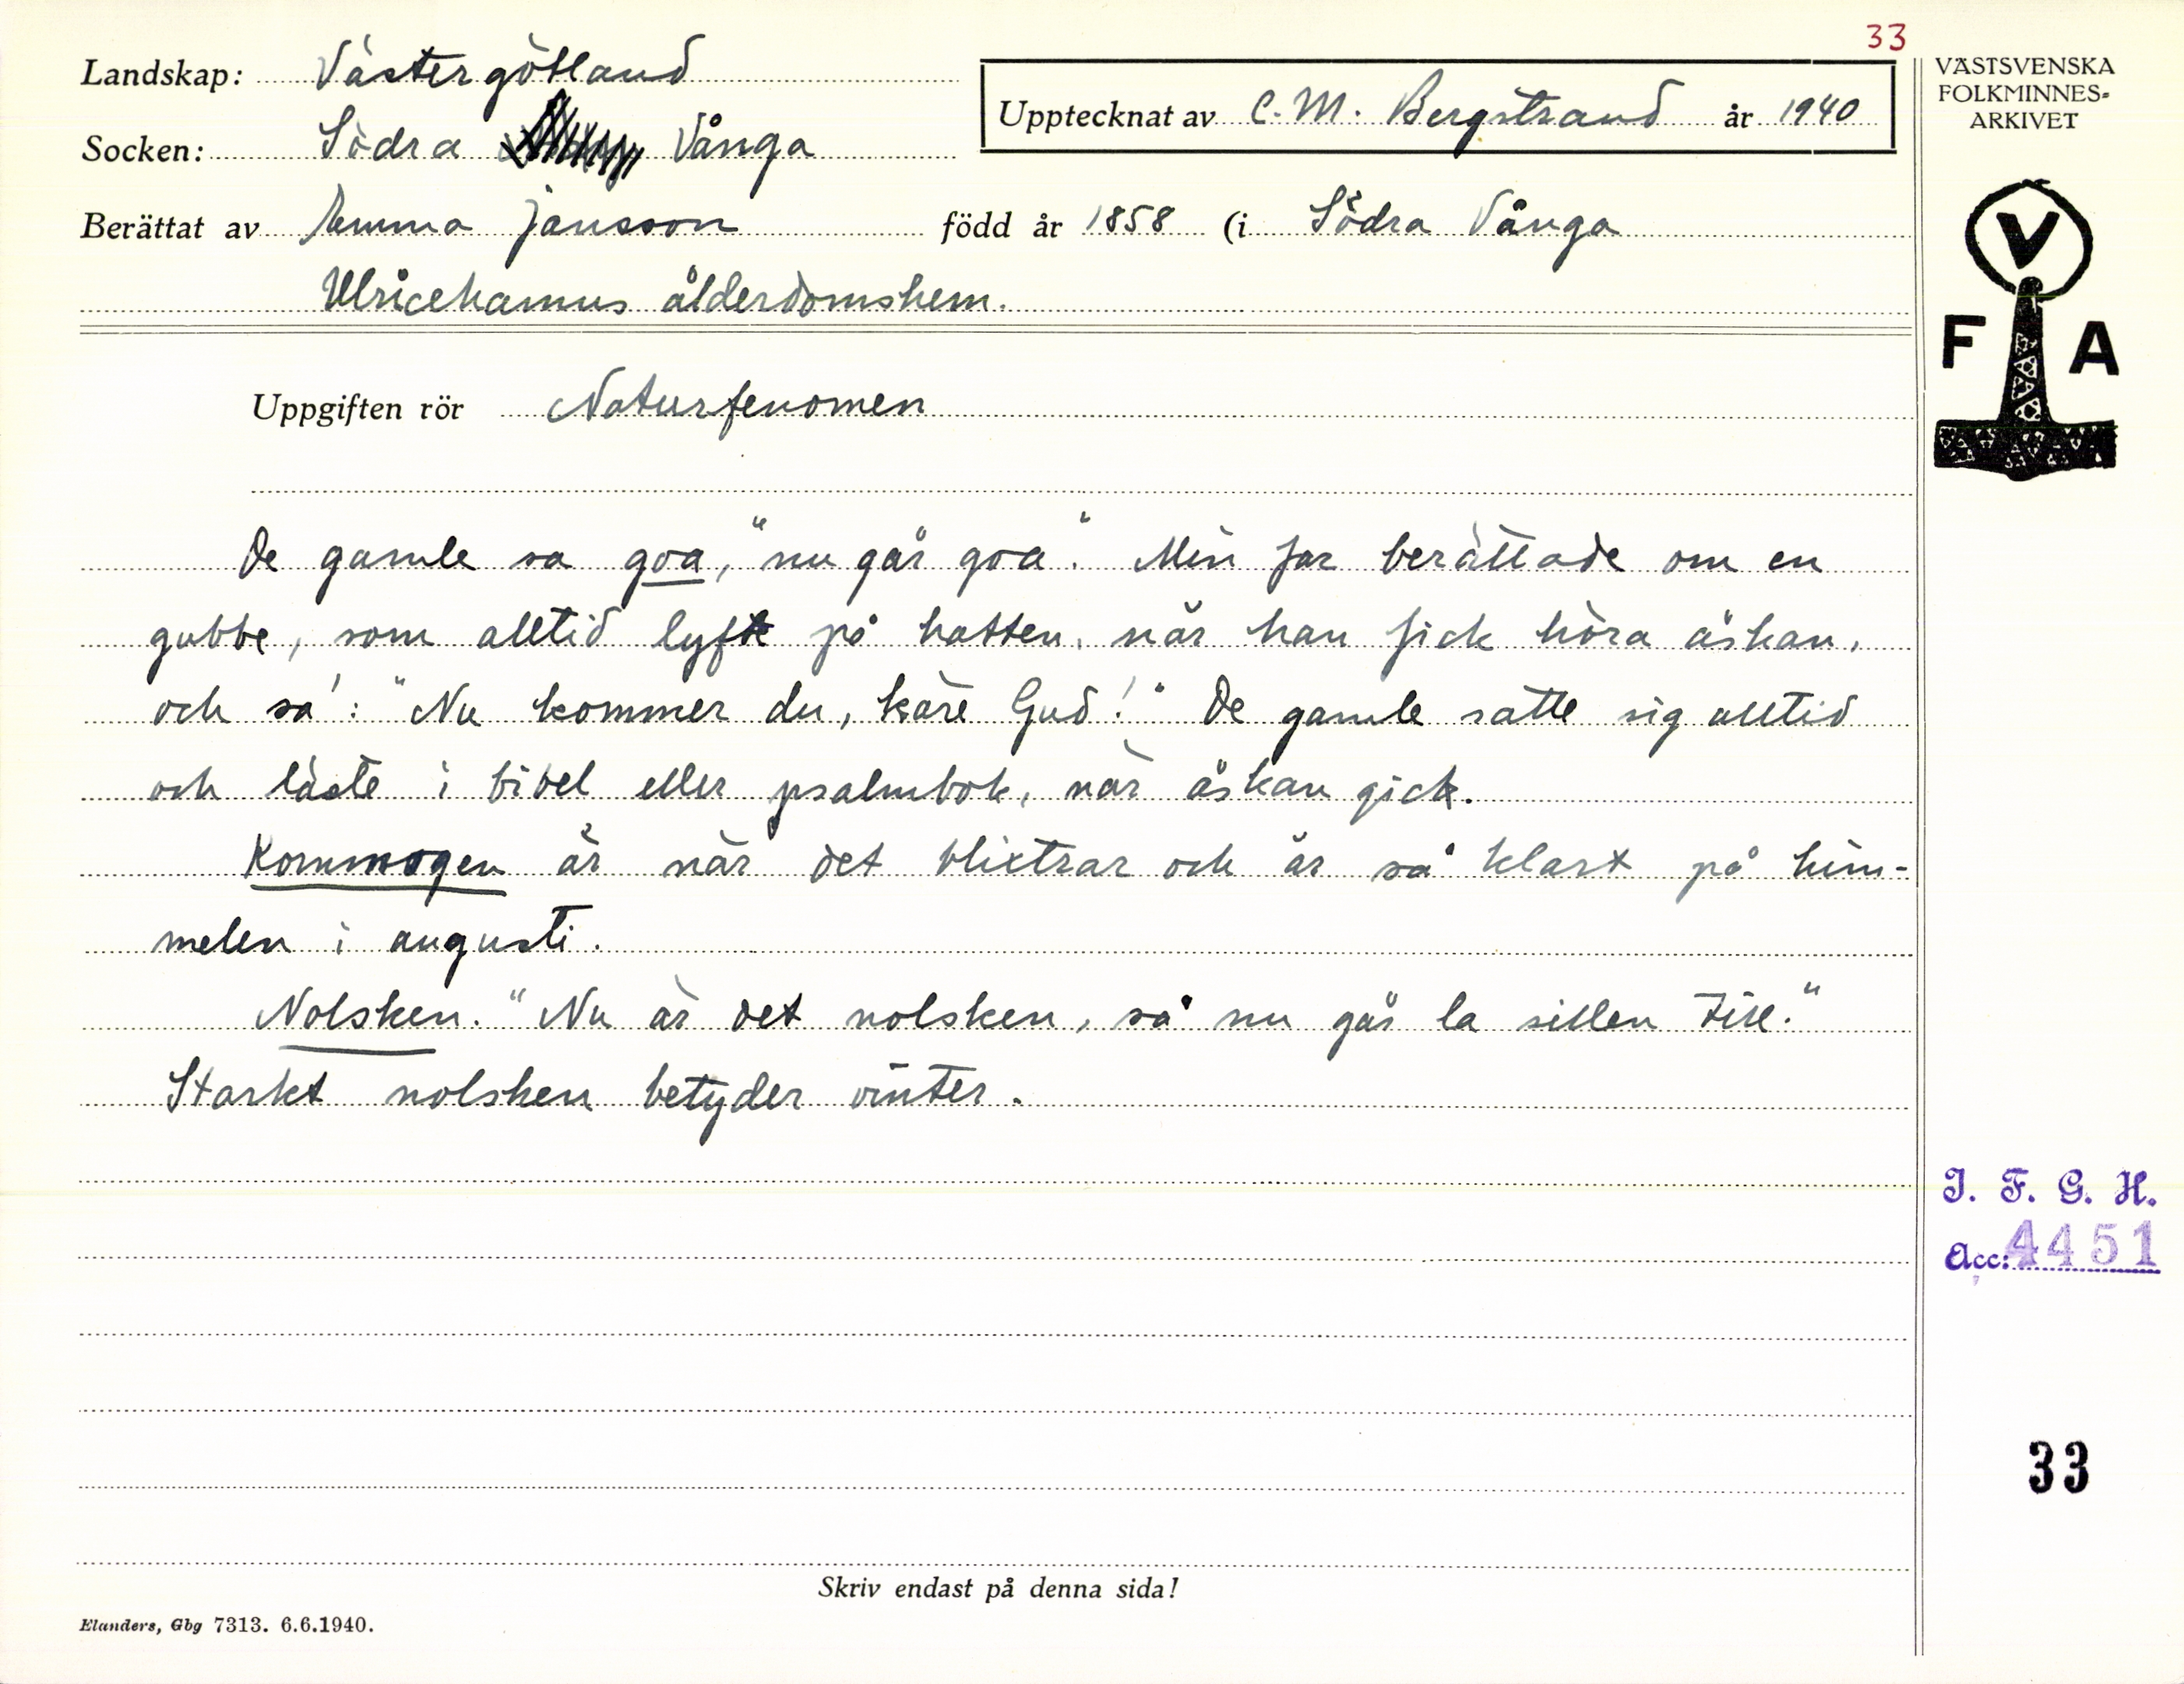 33
Landskap: Västergötland
Upptecknat av C. M. Bergstrand år 1940
Socken: Södra Vånga
Berättat av Emma Jansson född år 1858 (i Södra Vånga
Ulricehamns ålderdomshem.
VÄSTSVENSKA
FOLKMINNES-
ARKIVET
V
F A
Uppgiften rör Naturfenomen
De gamle sa goa, "nu går goa". Min far berättade om en
gubbe, som alltid lyfte på hatten, när han fick höra åskan,
och sa': "Nu kommer du, käre Gud!" De gamle satte sig alltid
och läste i bibel eller psalmbok, när åskan gick.
Kornmogen är när det blixtrar och är så klart på him-
melen i augusti.
Nolsken. "Nu är det nolsken, så nu går la sillen till."
Starkt nolsken betyder vinter.
I. F. G. H.
Acc: 4451
33
Skriv endast på denna sida!
Elanders, Gbg 7313. 6.6.1940.